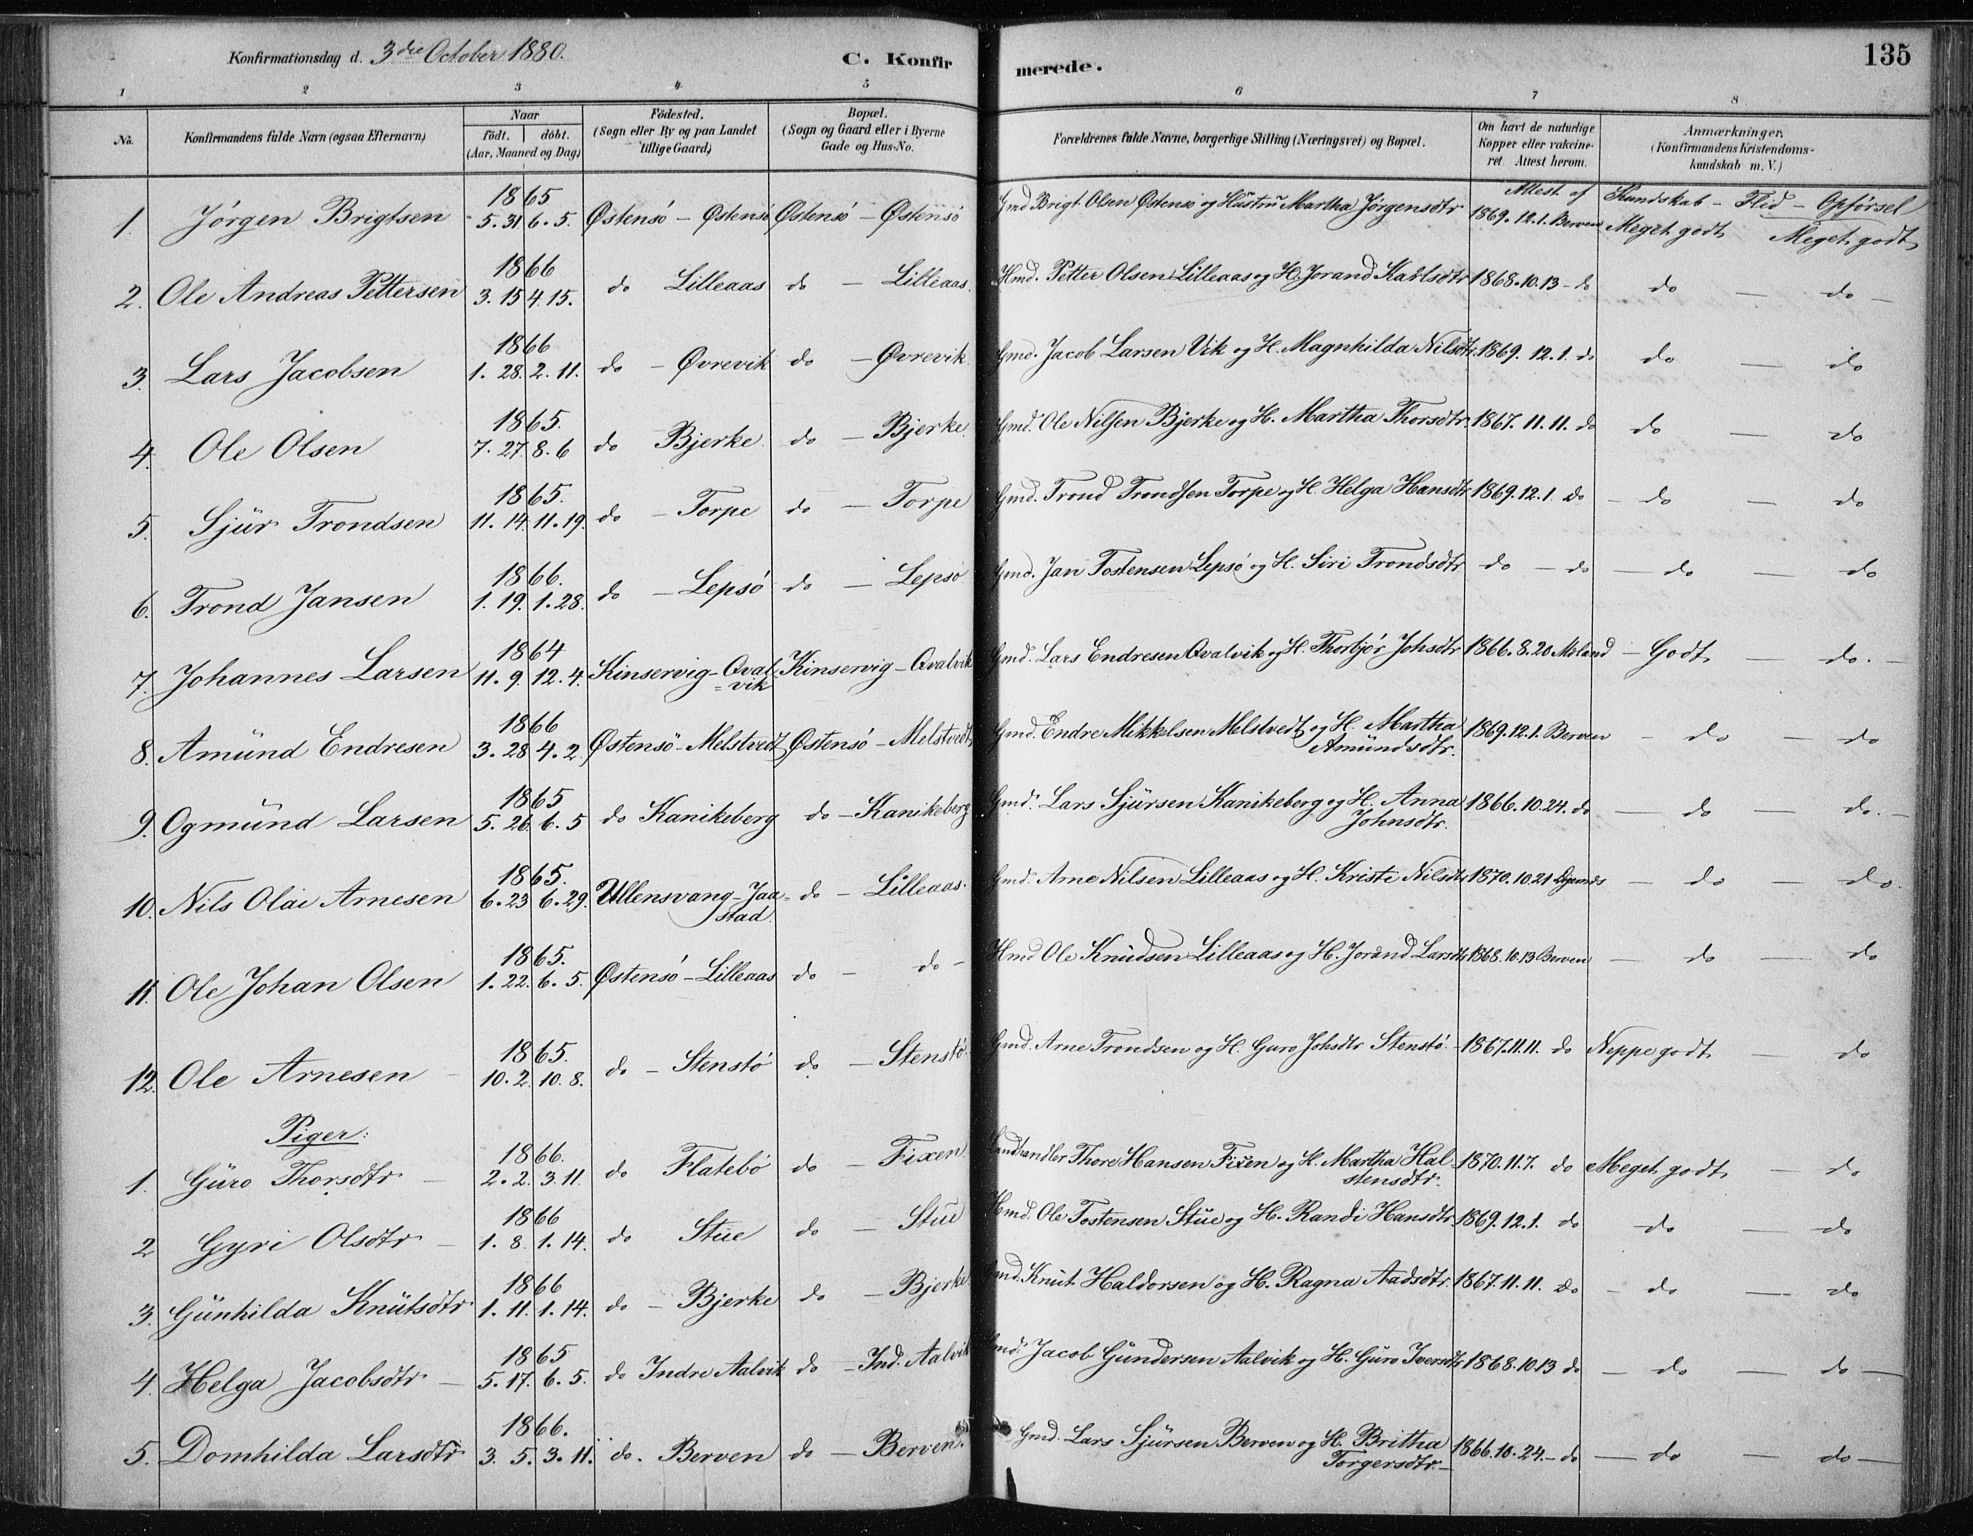 Konfirmationsdag d. 3die October 1880.
C. Konfirmerede.
135
1 2 3 4 5 6 7 8
No. Konfirmandens fulde Navn (ogsaa Efternavn) Naar født. døbt. (Aar, Maaned og Dag) Fødested. (Sogn eller By og paa Landet tillige Gaard) Bopæl. (Sogn og Gaard eller i Byerne Gade og Hus-No. Forældrenes fulde Navne, borgerlige Stilling (Næringsvei) og Bopæl. Om havt de naturlige Kopper eller vakcineret Attest herom. Anmærkninger. (Konfirmandens Kristendomskundskab m.V.)
Attest af Kundskab - Flid - Opførsel
1. Jørgen Brigtsen 1865 5.31 6.5. Østensö - Østensö Østensö - Østensö Gmd Brigt Olsen Østensö og Hustru Martha Jörgensdtr 1869.12.1. Berven Meget godt Meget godt
2. Ole Andreas Pettersen 1866 3.15 4.15. do Lilleaas do - Lilleaas. Hmd. Petter Olsen Lilleaas og H. Jorand Karlsdtr 1868.10.13 - do do - do -
3. Lars Jacobsen 1866 1.28. 2.11. do - Øvrevik do - Øvrevik Gmd. Jacob Larsen Vik og H. Magnhilda Nilsdtr 1869.12.1. do do - do
4. Ole Olsen 1865. 7.27. 8.6 do Bjerke do - Bjerke. Gmd. Ole Nilsen Bjerke og H. Martha Thorsdtr. 1867.11.11. do do - do
5. Sjür Trondsen 1865. 11.14. 11.19. do - Torpe do - Torpe Gmd. Trond Trondsen Torpe og H. Helga Hansdtr 1869.12.1. do - do do
6. Trond Jansen 1866. 1.19. 1.28. do - Lepsö do - Lepsö Gmd. Jan Tostensen Lepsö og H. Siri Trondsdtr do - do - do - do
7. Johannes Larsen 1864 11.9. 12.4. Kinservig - Qvalvik Kinservig - Qvalvik Gmd. Lars Endresen Qvalvik og H. Thorbjör Johsdtr 1866.8.20 - Godt - do. -
8. Amünd Endresen 1866 3.28 4.2. Østensö - Melstvedt Østensö - Melstvedt Gmd. Endre Mikkelsen Melstvedt og H. Martha Amündsdtr. 1869.12.1. Berven - do - do
9. Ogmünd Larsen 1865 5.26. 6.5 do Kanikeberg do - Kanikeberg Gmd. Lars Sjürsen Kanikeberg og H. Anna Johnsdtr. 1866.10.24. do - do - do. -
10. Nils Olai Arnesen 1865. 6.23 6.29. Ullensvang - Jaastad. do - Lilleaas. Gmd. Arne Nilsen Lilleaas og H. Kristi Nilsdtr 1870.10.21 - do - do.
11. Ole Johan Olsen 1865. 1.22. 6.5. Østensö - Lilleaas do - do - Hmd Ole Knüdsen Lilleaas og H. Jorånd Larsdtr 1868.10.13 Berven - do - do
12. Ole Arnesen 1865. 10.2. 10.8. do - Stenstö do - Stenstö. Gmd. Arne Trondsen og H. Guro Johsdtr Stenstö. 1867.11.11. do Neppe godt - do
Piger:
1. Güro Thorsdtr 1866. 2.2. 3.11. do Flatebö do - Fixen. Landhandler Thore Hansen Fixen og H. Martha Halstensdtr. 1870.11.7. do Meget godt - do
2 Gyri Olsdtr 1866 1.8. 1.14. do Stüe do - Stüe Hmd. Ole Tostensen Stüe og H. Randi Hansdtr 1869.12.1. do do - do
3. Günhilda Knütsdtr 1866 1.11. 1.14. do - Bjerke do - Bjerke Gmd. Knüt Haldorsen og H. Ragna Aadsdtr. 1867.11.11. do - do - do
4. Helga Jacobsdtr 1865 5.17. 6.5. do Indre Aalvik do - Ind. Aalvik Gmd. Jacob Gündersen Aalvik og H. Güro Iversdtr 1868.10.13 do - do - do -
5. Domhilda Larsdtr 1866. 3.5. 3.11. do. Berven do - Berven. Gmd. Lars Sjürsen Berven og H. Britha Torgersdtr. - 1866.10.24. - do - do - do -